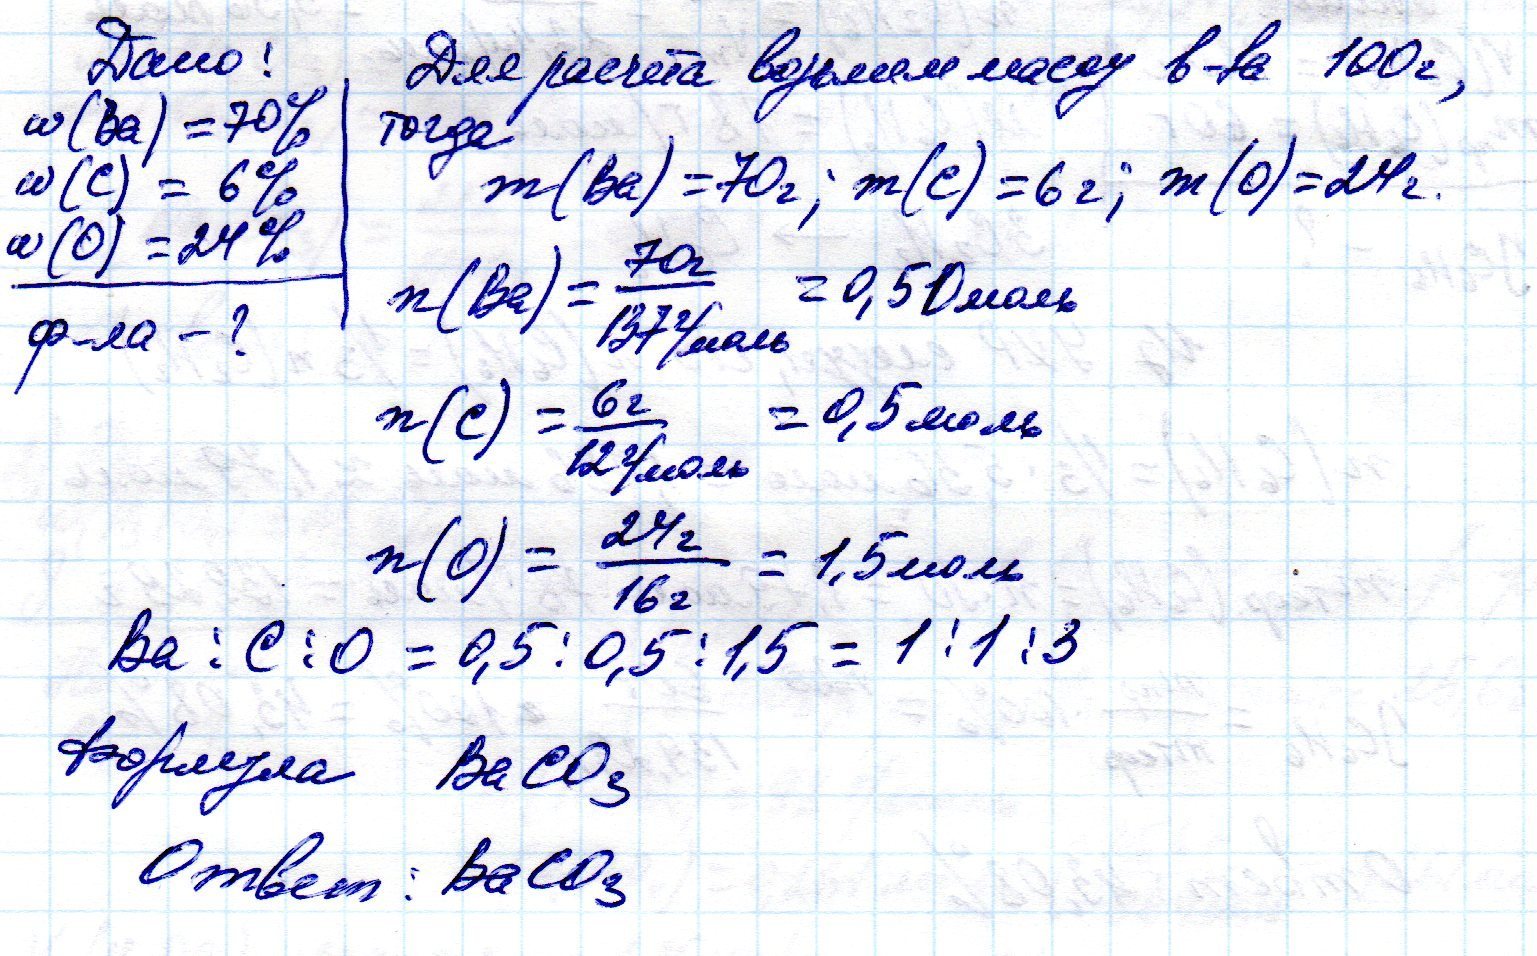 Дано:
w(Ba) = 70%
w(C) = 6%
w(O) = 24%
ф-ла - ?
Для расчёта возьмем массу в-ва 100г,
тогда
m(Ba) = 70г; m(C) = 6г; m(O) = 24г.
n(Ba) = 70г / 137г/моль = 0,51моль
n(C) = 6г / 12г/моль = 0,5моль
n(O) = 24г / 16г = 1,5моль
Ba : C : O = 0,5 : 0,5 : 1,5 = 1 : 1 : 3
Формула BaCO3
Ответ: BaCO3